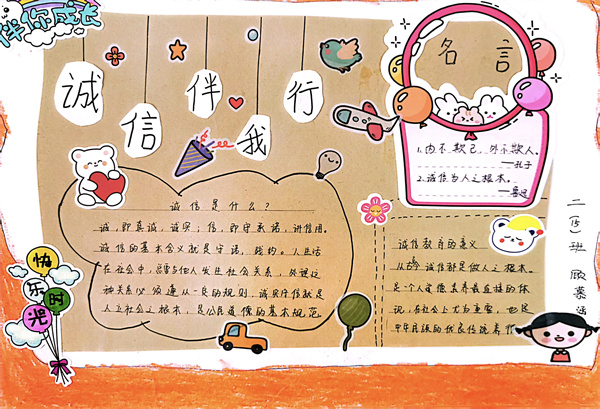 伴你成长
诚信伴我行
名言
1.内不欺己,外不欺人。
——孔子
2.诚信为人之根本。
——鲁迅
诚信是什么?
诚,即真诚,诚实;信,即守承诺,讲信用。
诚信的基本含义就是守诺、践约。人生活
在社会中,总要与他人发生社会关系。处理这
种关系必须遵从一定的规则,诚实守信就是
人立社会之根本,是公民道德的基本规范
诚信教育的意义
从古今诚信都是做人之根本。
是个人道德素养最直接的体
现,在社会上尤为重要,也是
中华民族的优良传统
二(15)班
快乐时光